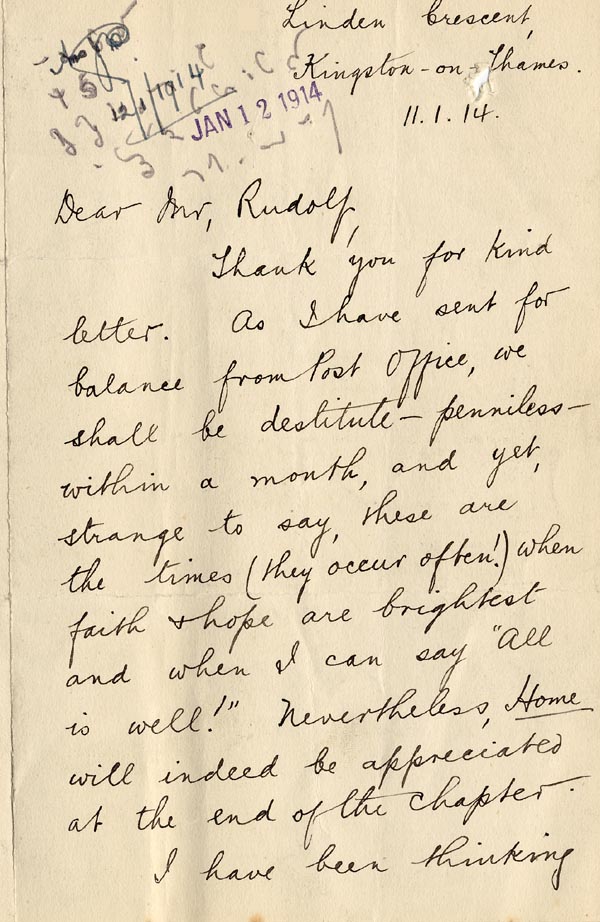 Linden Crescent,
Kingston-on-Thames.
11.1.14.
12/1/1914
JAN 12 1914
Dear Mr, Rudolf,
Thank you for kind
letter. As I have sent for
balance from Post Office, we
shall be destitute - penniless -
within a month, and yet,
strange to say, these are
the times (they occur often!) when
faith & hope are brightest
and when I can say "All
is well!" Nevertheless, Home
will indeed be appreciated
at the end of the chapter.
I have been thinking